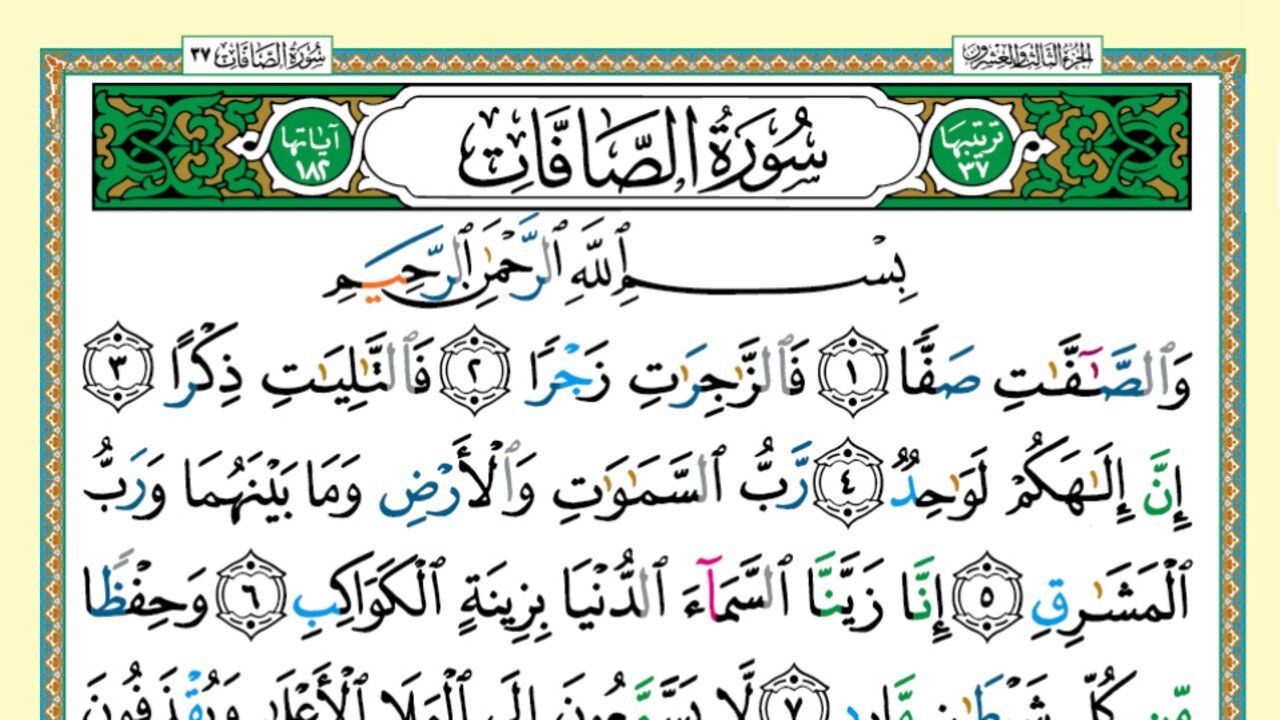 الجزء الثالث والعشرون
سورة الصافات ٣٧
ترتيبها ٣٧
سُورَةُ الصَّافَّاتِ
آياتها ١٨٢
بِسْمِ ٱللَّهِ ٱلرَّحْمَٰنِ ٱلرَّحِيمِ
وَٱلصَّٰٓفَّٰتِ صَفًّا ١ فَٱلزَّٰجِرَٰتِ زَجْرًا ٢ فَٱلتَّٰلِيَٰتِ ذِكْرًا ٣
إِنَّ إِلَٰهَكُمْ لَوَٰحِدٌ ٤ رَّبُّ ٱلسَّمَٰوَٰتِ وَٱلْأَرْضِ وَمَا بَيْنَهُمَا وَرَبُّ
ٱلْمَشَٰرِقِ ٥ إِنَّا زَيَّنَّا ٱلسَّمَآءَ ٱلدُّنْيَا بِزِينَةٍ ٱلْكَوَاكِبِ ٦ وَحِفْظًا
مِّن كُلِّ شَيْطَٰنٍ مَّارِدٍ ٧ لَّا يَسَّمَّعُونَ إِلَى ٱلْمَلَإِ ٱلْأَعْلَىٰ وَيُقْذَفُونَ